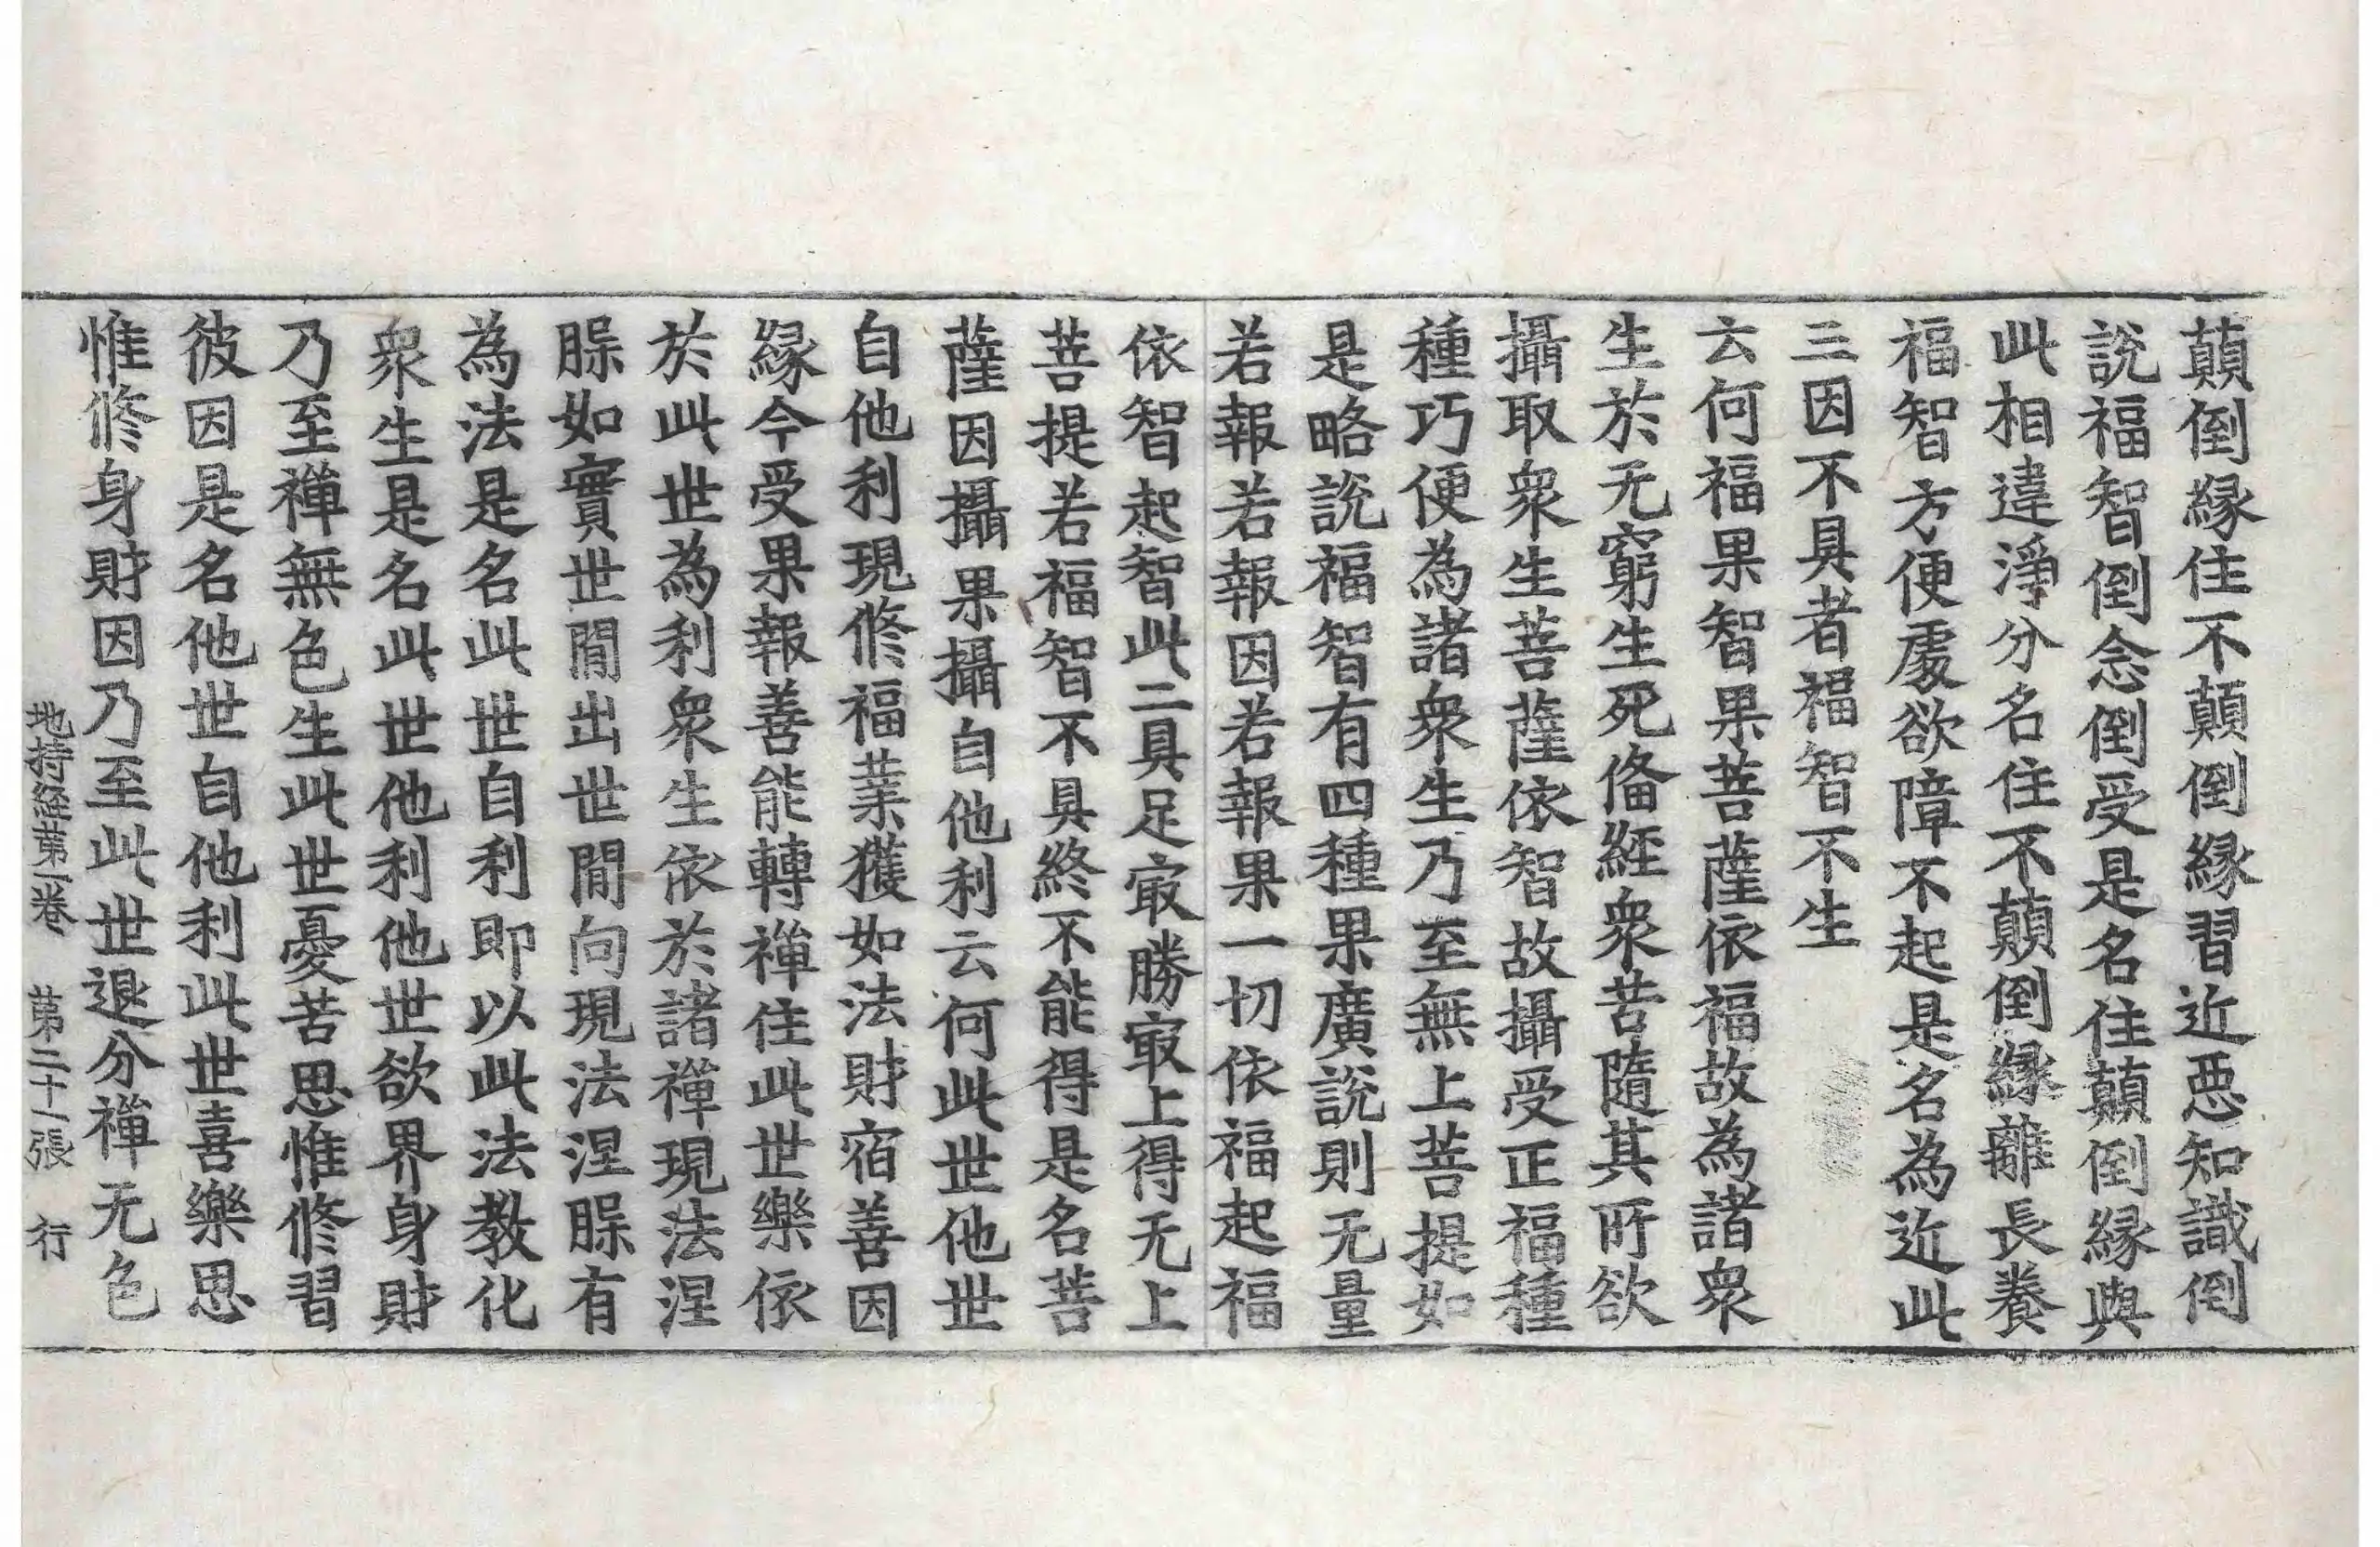 顛倒緣住不顛倒緣習近惡知識倒
說福智倒念倒受是名住顛倒緣與
此相違淨分名住不顛倒緣離長養
福智方便處欲障不起是名為近此
三因不具者福智不生
云何福果智果菩薩依福故為諸衆
生於无窮生死俻經衆苦隨其所欲
攝取衆生菩薩依智故攝受正福種
種巧便為諸衆生乃至無上菩提如
是略說福智有四種果廣說則无量
若報若報因若報果一切依福起福
依智起智此二具足㝡勝㝡上得无上
菩提若福智不具終不能得是名菩
薩因攝果攝自他利云何此世他世
自他利現修福業獲如法財宿善因
緣今受果報善能轉禪住此世樂依
於此世為利衆生依於諸禪現法涅
𦙃如實世間出世間向現法涅𦙃有
為法是名此世自利即以此法教化
衆生是名此世他利他世欲界身財
乃至禪無色生此世憂苦思惟修習
彼因是名他世自他利此世喜樂思
惟修身財因乃至此世退分禪无色
地持経苐一卷　苐二十一張　行